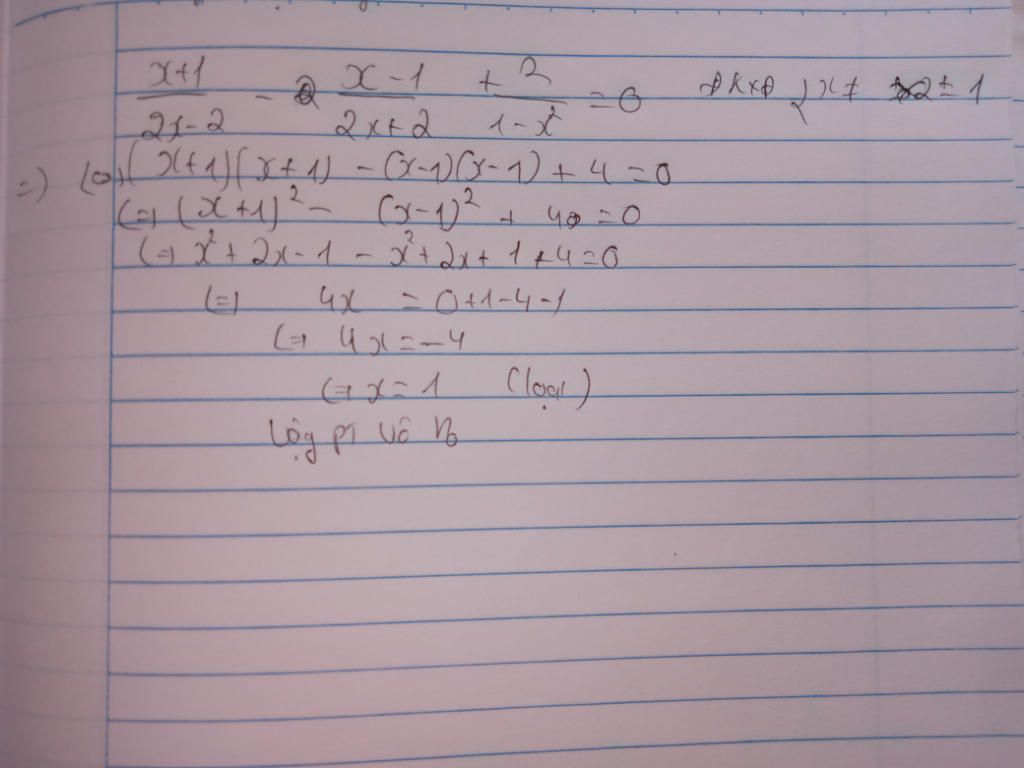 x+1/2x-2 - x-1/2x+2 + 2/1-x² = 0 ĐKXĐ x ≠ ± 1
=) (x+1)(x+1) - (x-1)(x-1) + 4 = 0
(=) (x+1)² - (x-1)² + 4 = 0
(=) x² + 2x - 1 - x² + 2x + 1 + 4 = 0
(=) 4x = 0+1-4-1
(=) 4x = -4
(=) x = 1 (loại)
Vậy pt vô No